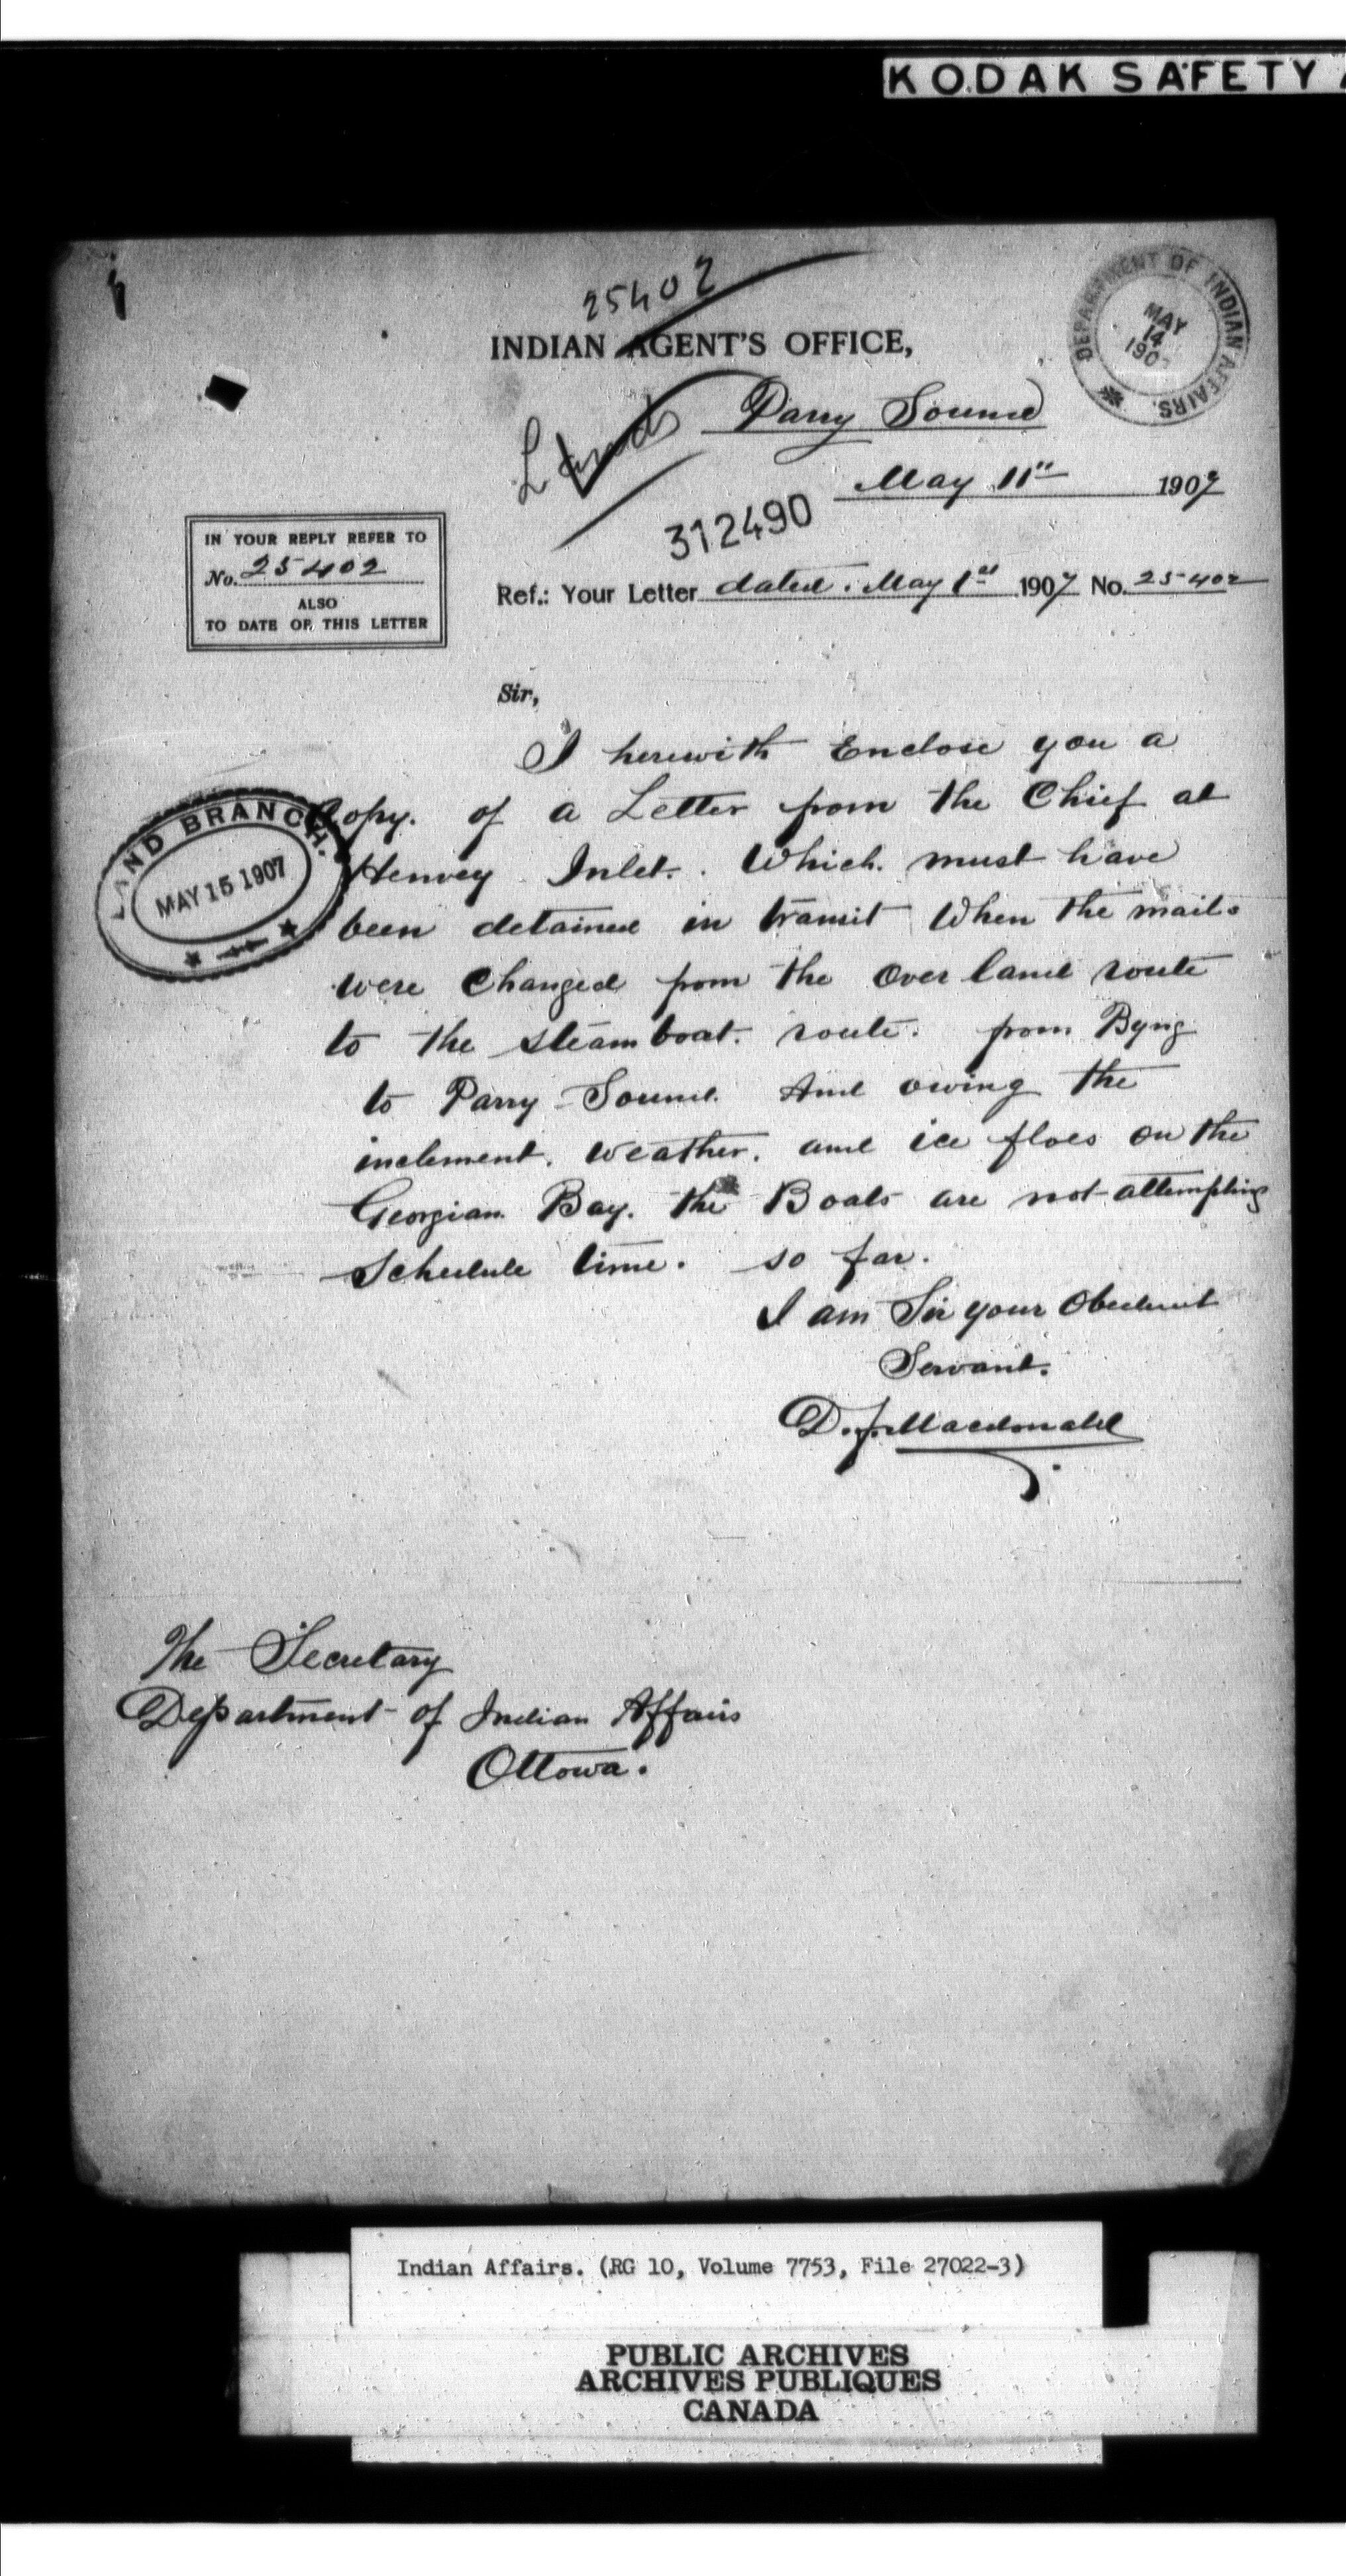 KODAK SAFETY
25402
INDIAN AGENT'S OFFICE,
DEPARTMENT OF INDIAN AFFAIRS.
MAY
14
190
Lands
Parry Sound
May 11th 1907
312490
IN YOUR REPLY REFER TO
No. 25402
ALSO
TO DATE OF THIS LETTER
Ref.: Your Letter dated. May 1st 1907 No. 25402
Sir,
I herewith Enclose you a
Copy. of a Letter from the Chief at
Henvey Inlet. Which. must have
been detained in transit When the mails
were Changed from the Over land route
to the steam boat. route. from Byng
to Parry Sound. And owing the
inclement. weather. and ice floes on the
Georgian Bay. the Boats are not attempting
Schedule time. so far.
LAND BRANCH.
MAY 15 1907
I am Sir your Obedient
Servant.
D. J. Macdonald
The Secretary
Department of Indian Affairs
Ottowa.
Indian Affairs. (RG 10, Volume 7753, File 27022-3)
PUBLIC ARCHIVES
ARCHIVES PUBLIQUES
CANADA